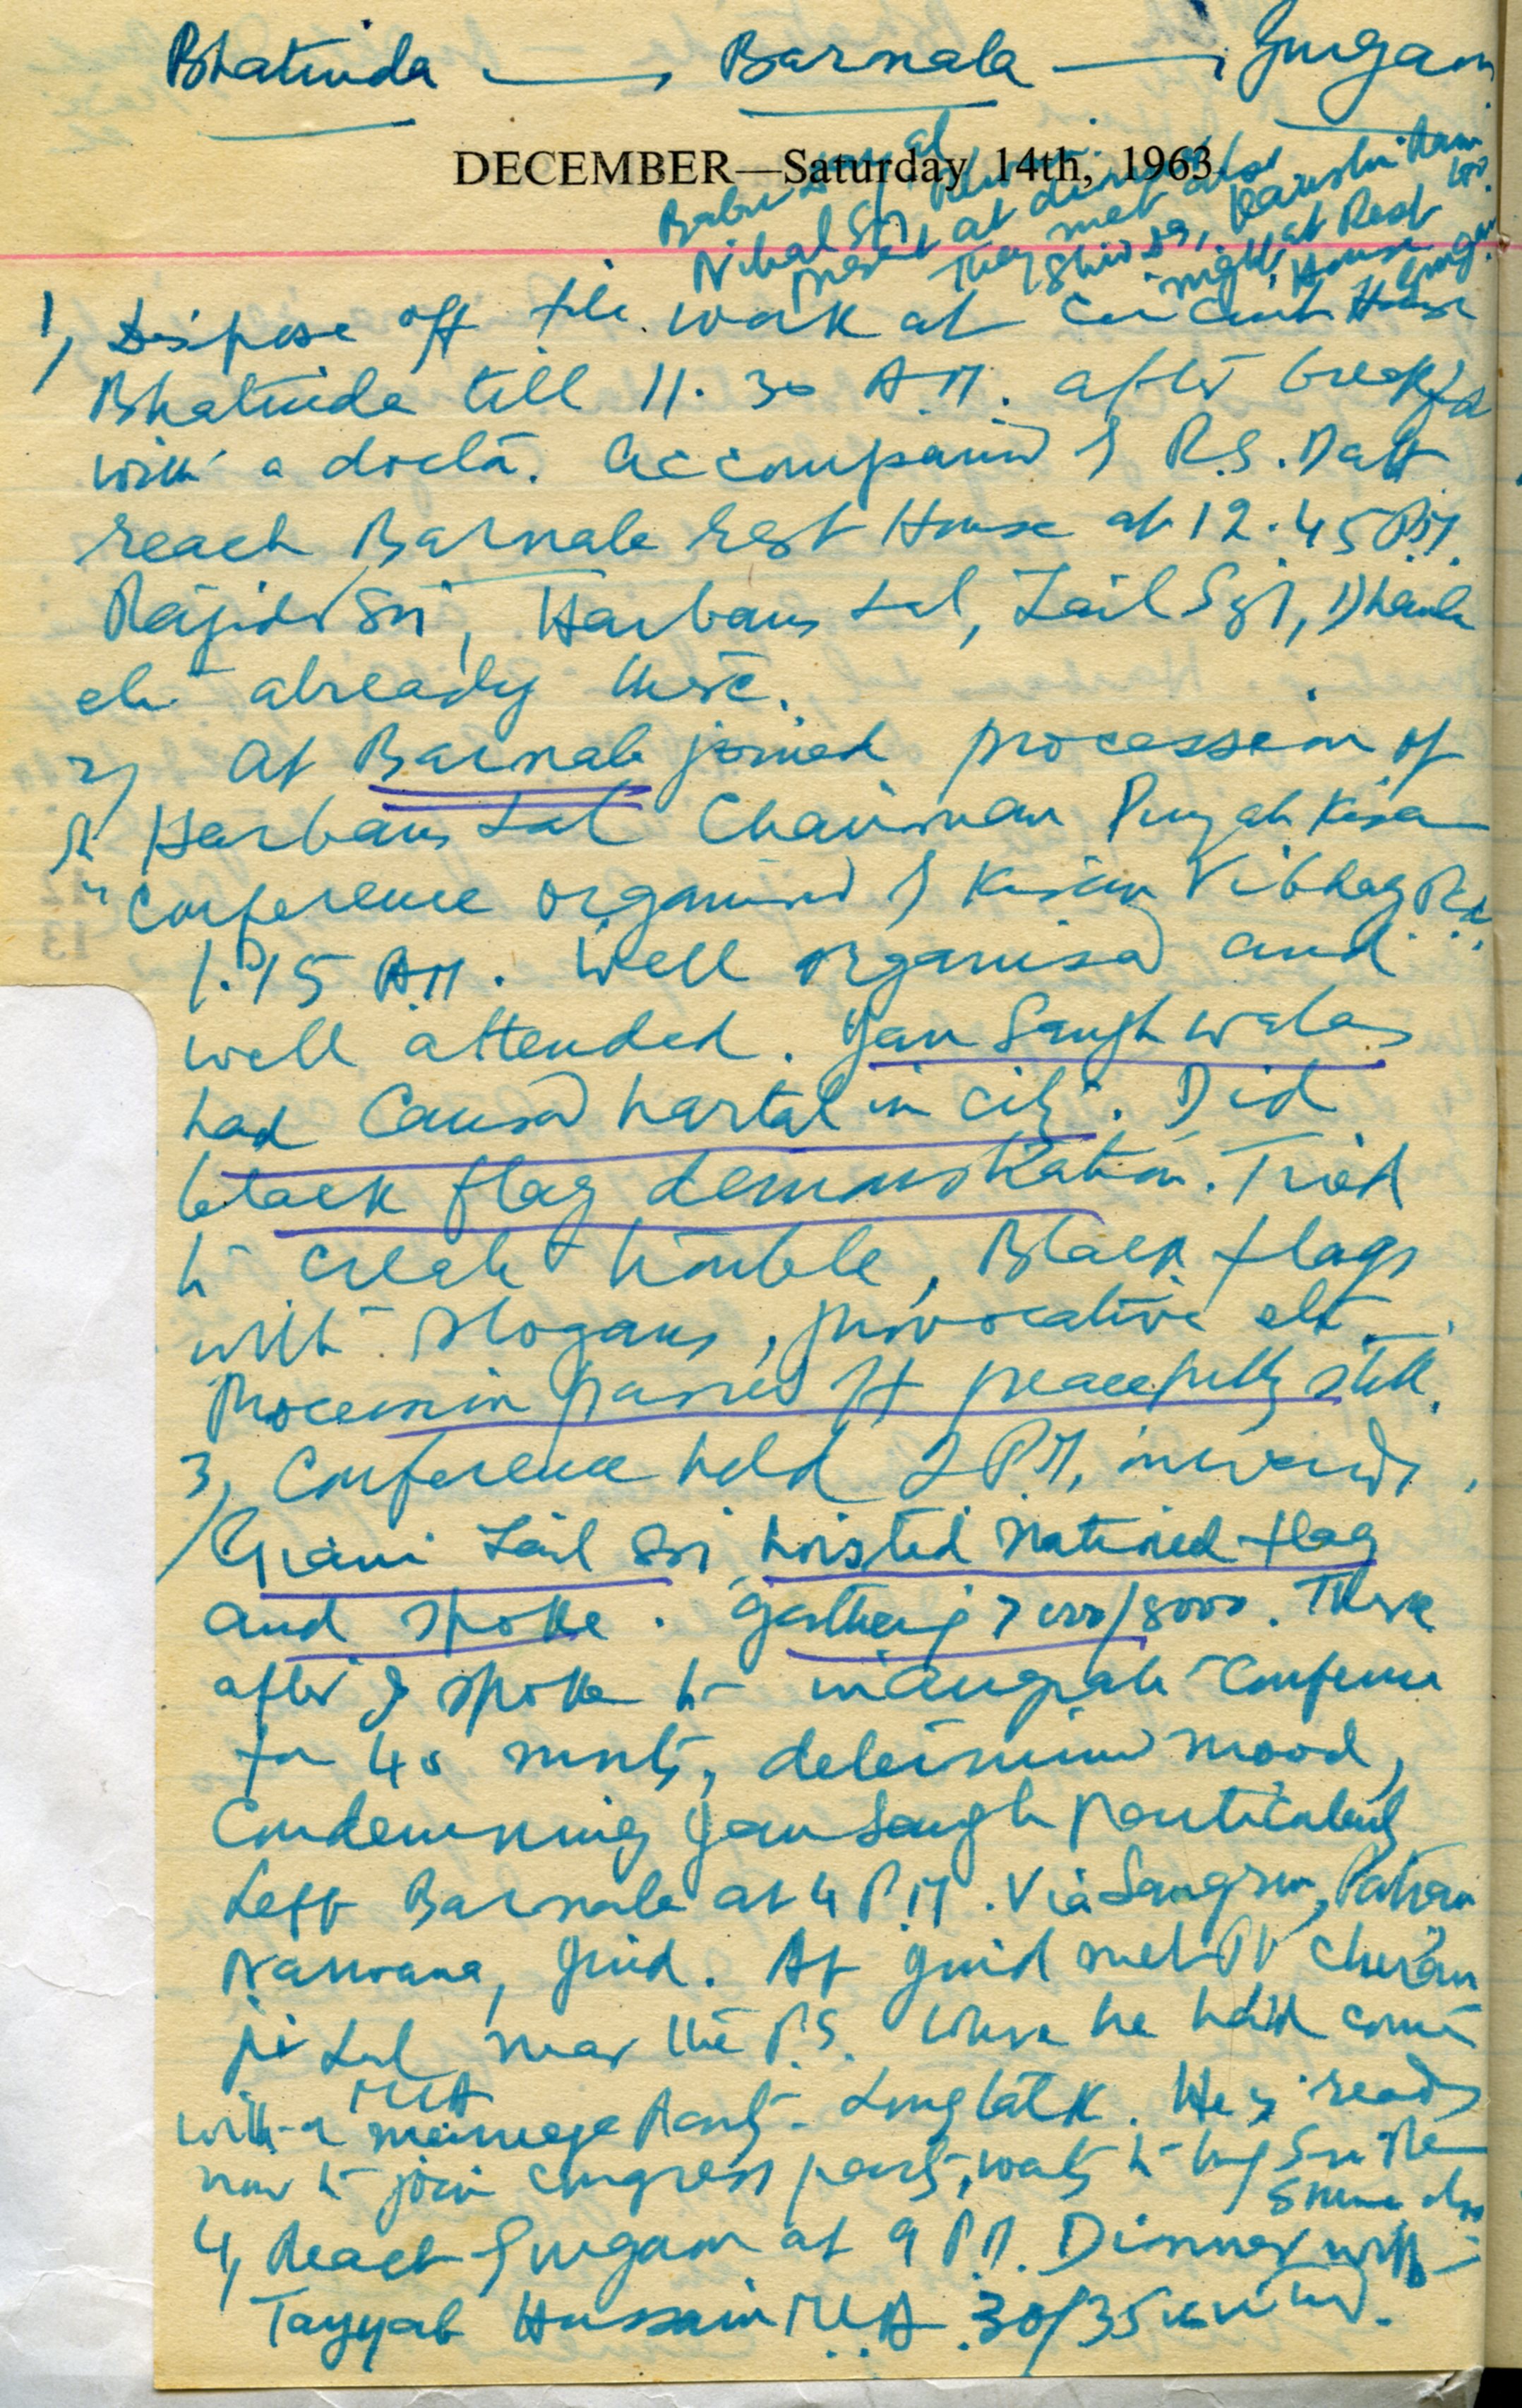 Bhatinda — Barnala — Gurgaon
DECEMBER—Saturday 14th, 1963
Babu al
Nihal Sgh
present at dinner
They met also
Shiv Kanshi Ram too
night at Rest
House Gurgaon
1, Dispose off file work at Circuit House
Bhatinda till 11.30 A.M. after breakfa
with a doctor. Accompanied R.S. Datt
reach Barnala rest House at 12.45 P.M.
Rajidr Sri, Harbans Lal, Zail Sgh, Dhaula
etc already there.
2, At Barnala joined procession of
Sh Harbans Lal Chairman Punjab Kisan
Conference organised Kisan Vibhag
1.15 A.M. Well organised and
well attended. Jan Sangh walas
had caused hartal in city. Did
black flag demonstration. Tried
to create trouble, Black flags
with slogans, provocative etc.
Procession passed off peacefully still.
3, Conference held 2 P.M. onwards.
Giani Zail Sri hoisted National flag
and spoke. Gathering 7000/8000. There
after I spoke to inaugrate Conference
for 40 mnts, determined mood,
Condemning Jan Sangh particularly
Left Barnala at 4 P.M. Via Sangrur, Patran
Narwana, Jind. At Jind met Pt Chiran
ji Lal near the P.S. where he had come
MLA
with a marriage Party. Long talk. He is ready
now to join Congress party, wants to bring
4, Reach Gurgaon at 9 P.M. Dinner with
Tayyab Hussain MLA 30/35 invited.